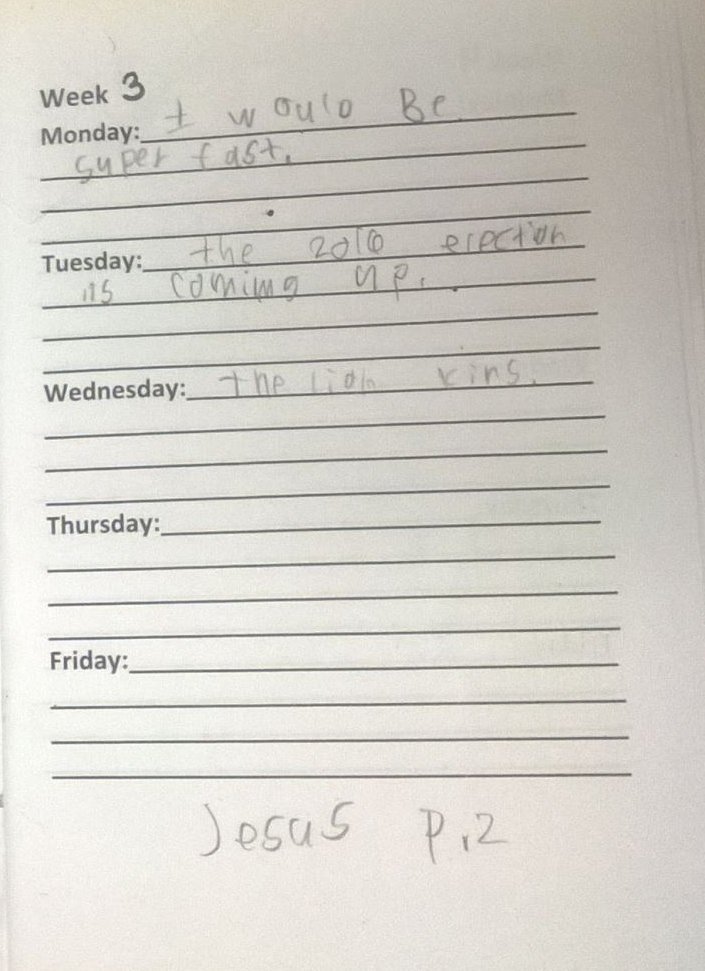 Week 3
Monday: I would Be
super fast.
Tuesday: the 2016 erection
is coming up.
Wednesday: the lion kins.
Thursday:
Friday:
Jesus p.2